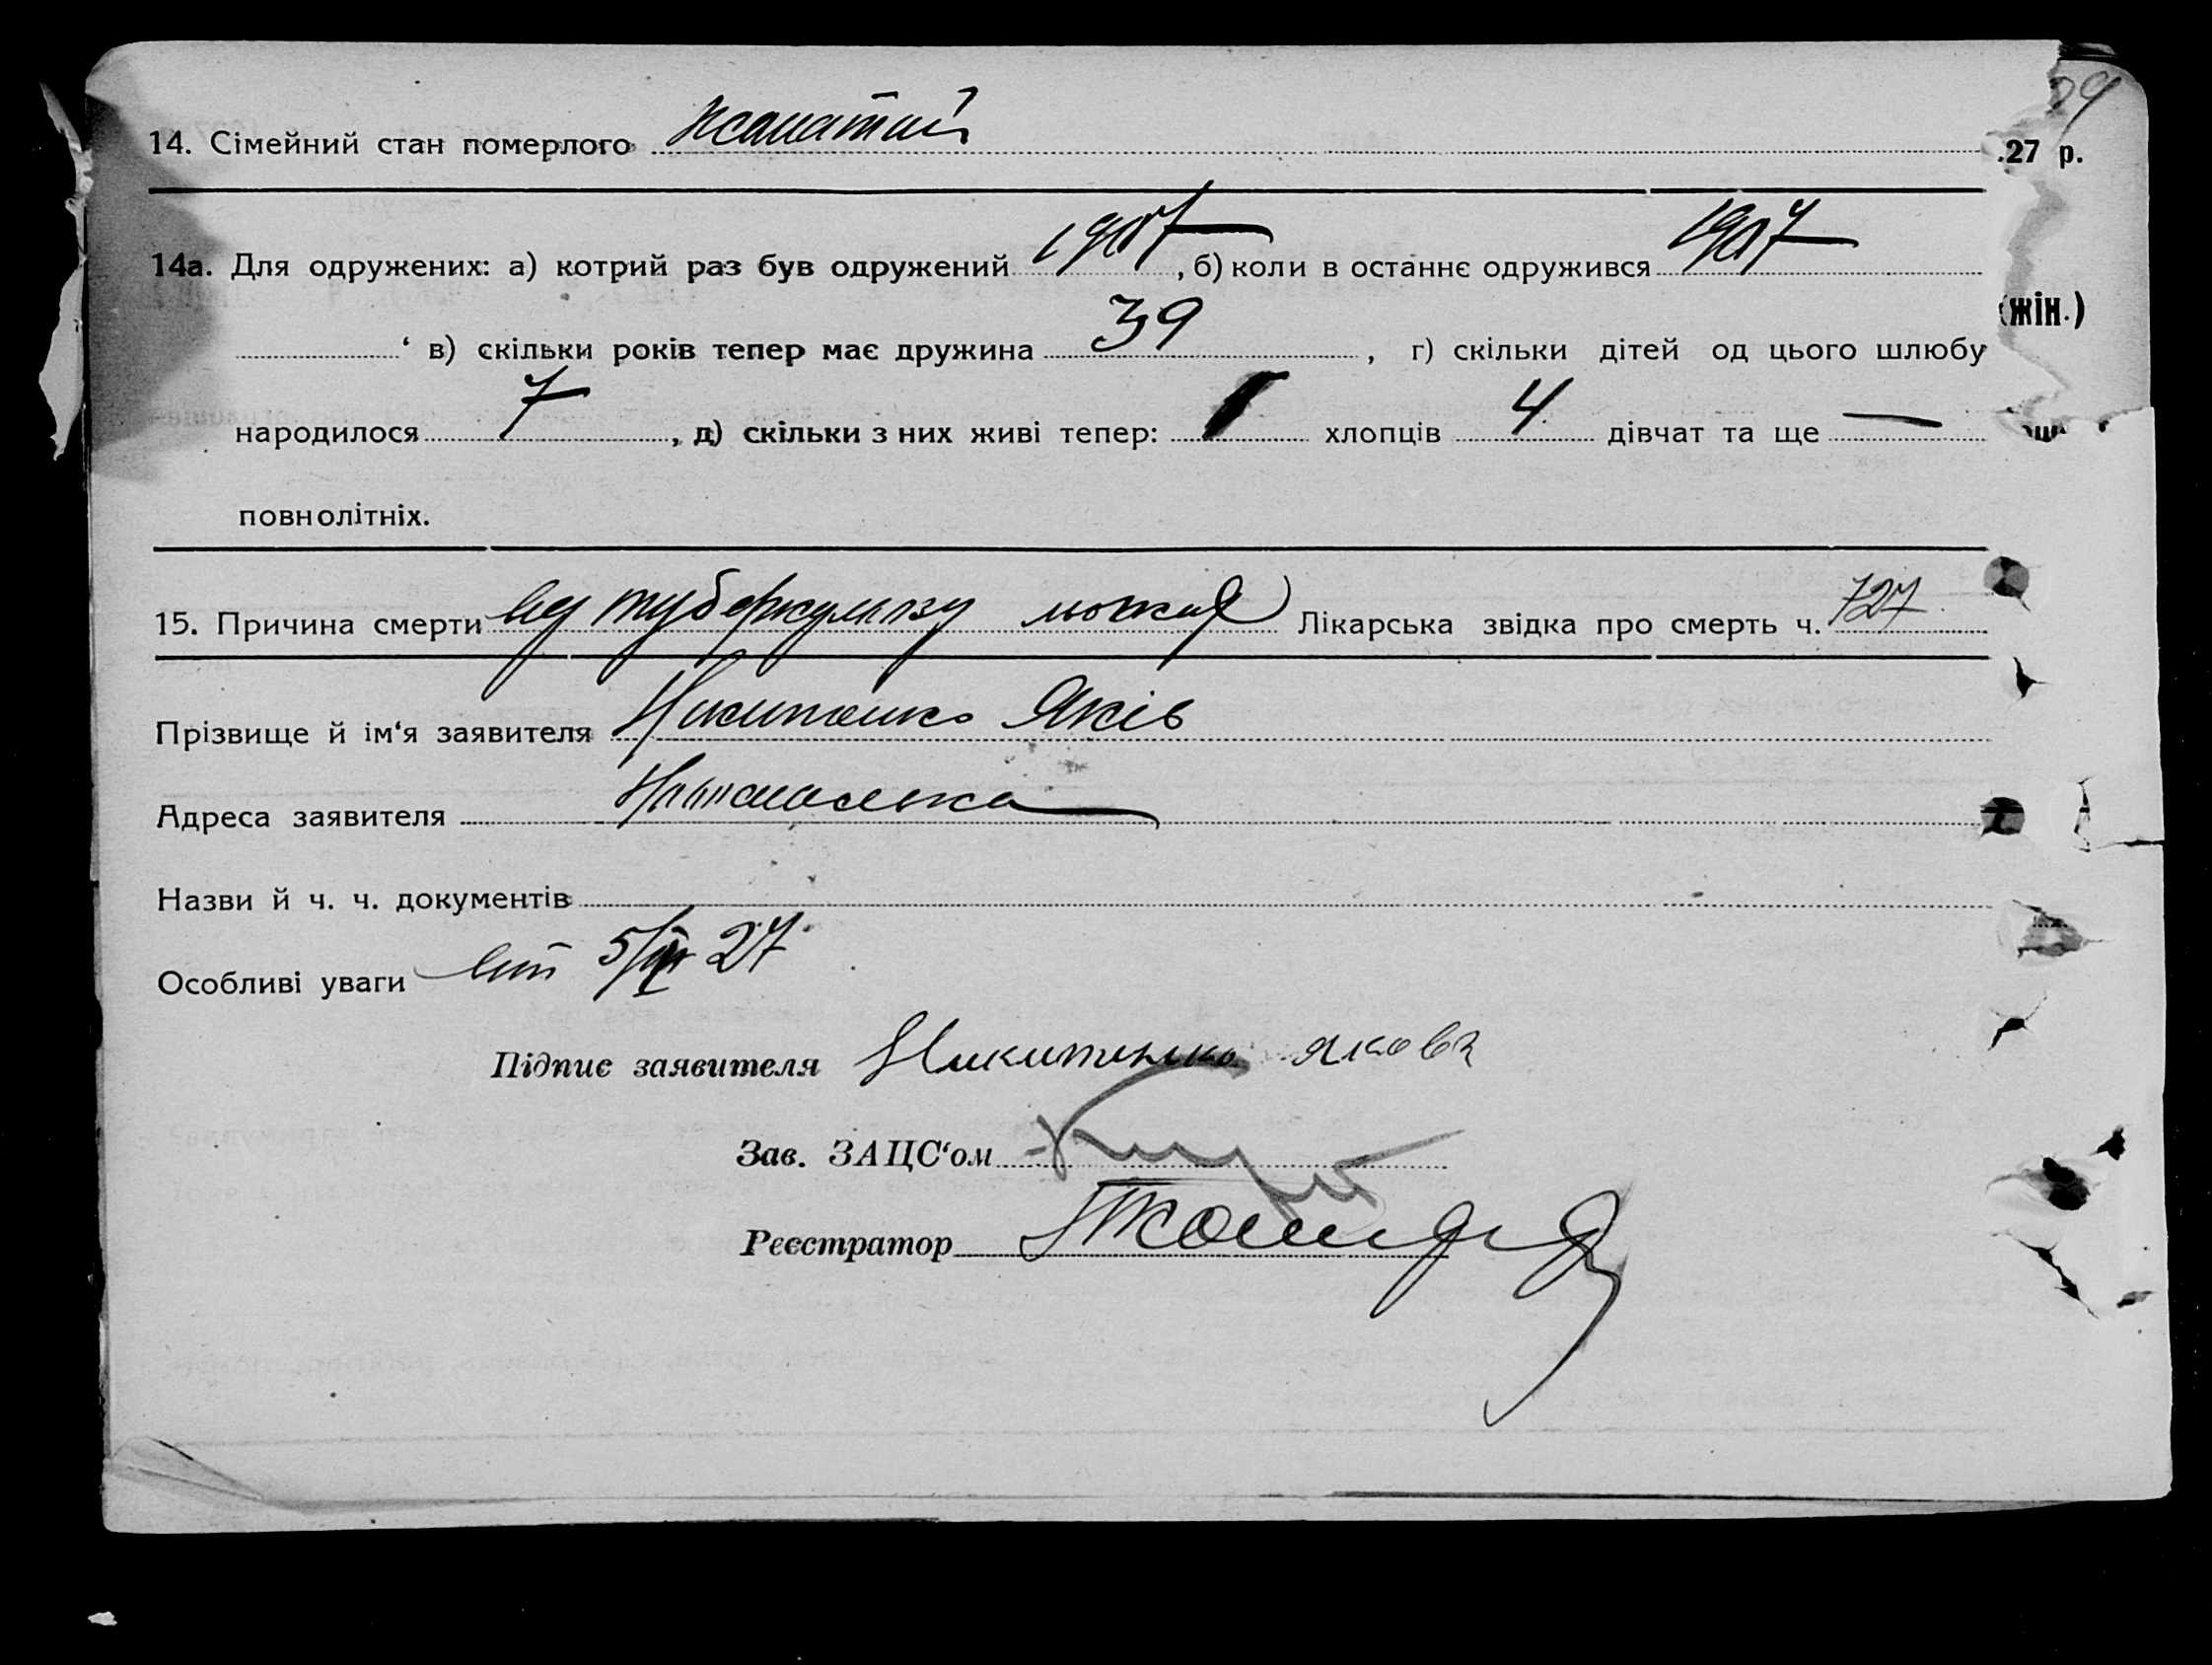 89
14. Сімейний стан померлого жонатий
.27 р.
14а. Для одружених: а) котрий раз був одружений 1907, б) коли в останнє одружився 1907
(жін.)
‘ в) скільки років тепер має дружина 39, г) скільки дітей од цього шлюбу
народилося 7, д) скільки з них живі тепер: хлопців 4 дівчат та ще —
повнолітніх.
15. Причина смерти від туберкульозу Лікарська звідка про смерть ч. 727
Прізвище й ім‘я заявителя Никитенко Яків
Адреса заявителя
Назви й ч. ч. документів
Особливі уваги 5/ 27
Підпис заявителя Никитенко Яков
Зав. ЗАЦС‘ом
Реєстратор